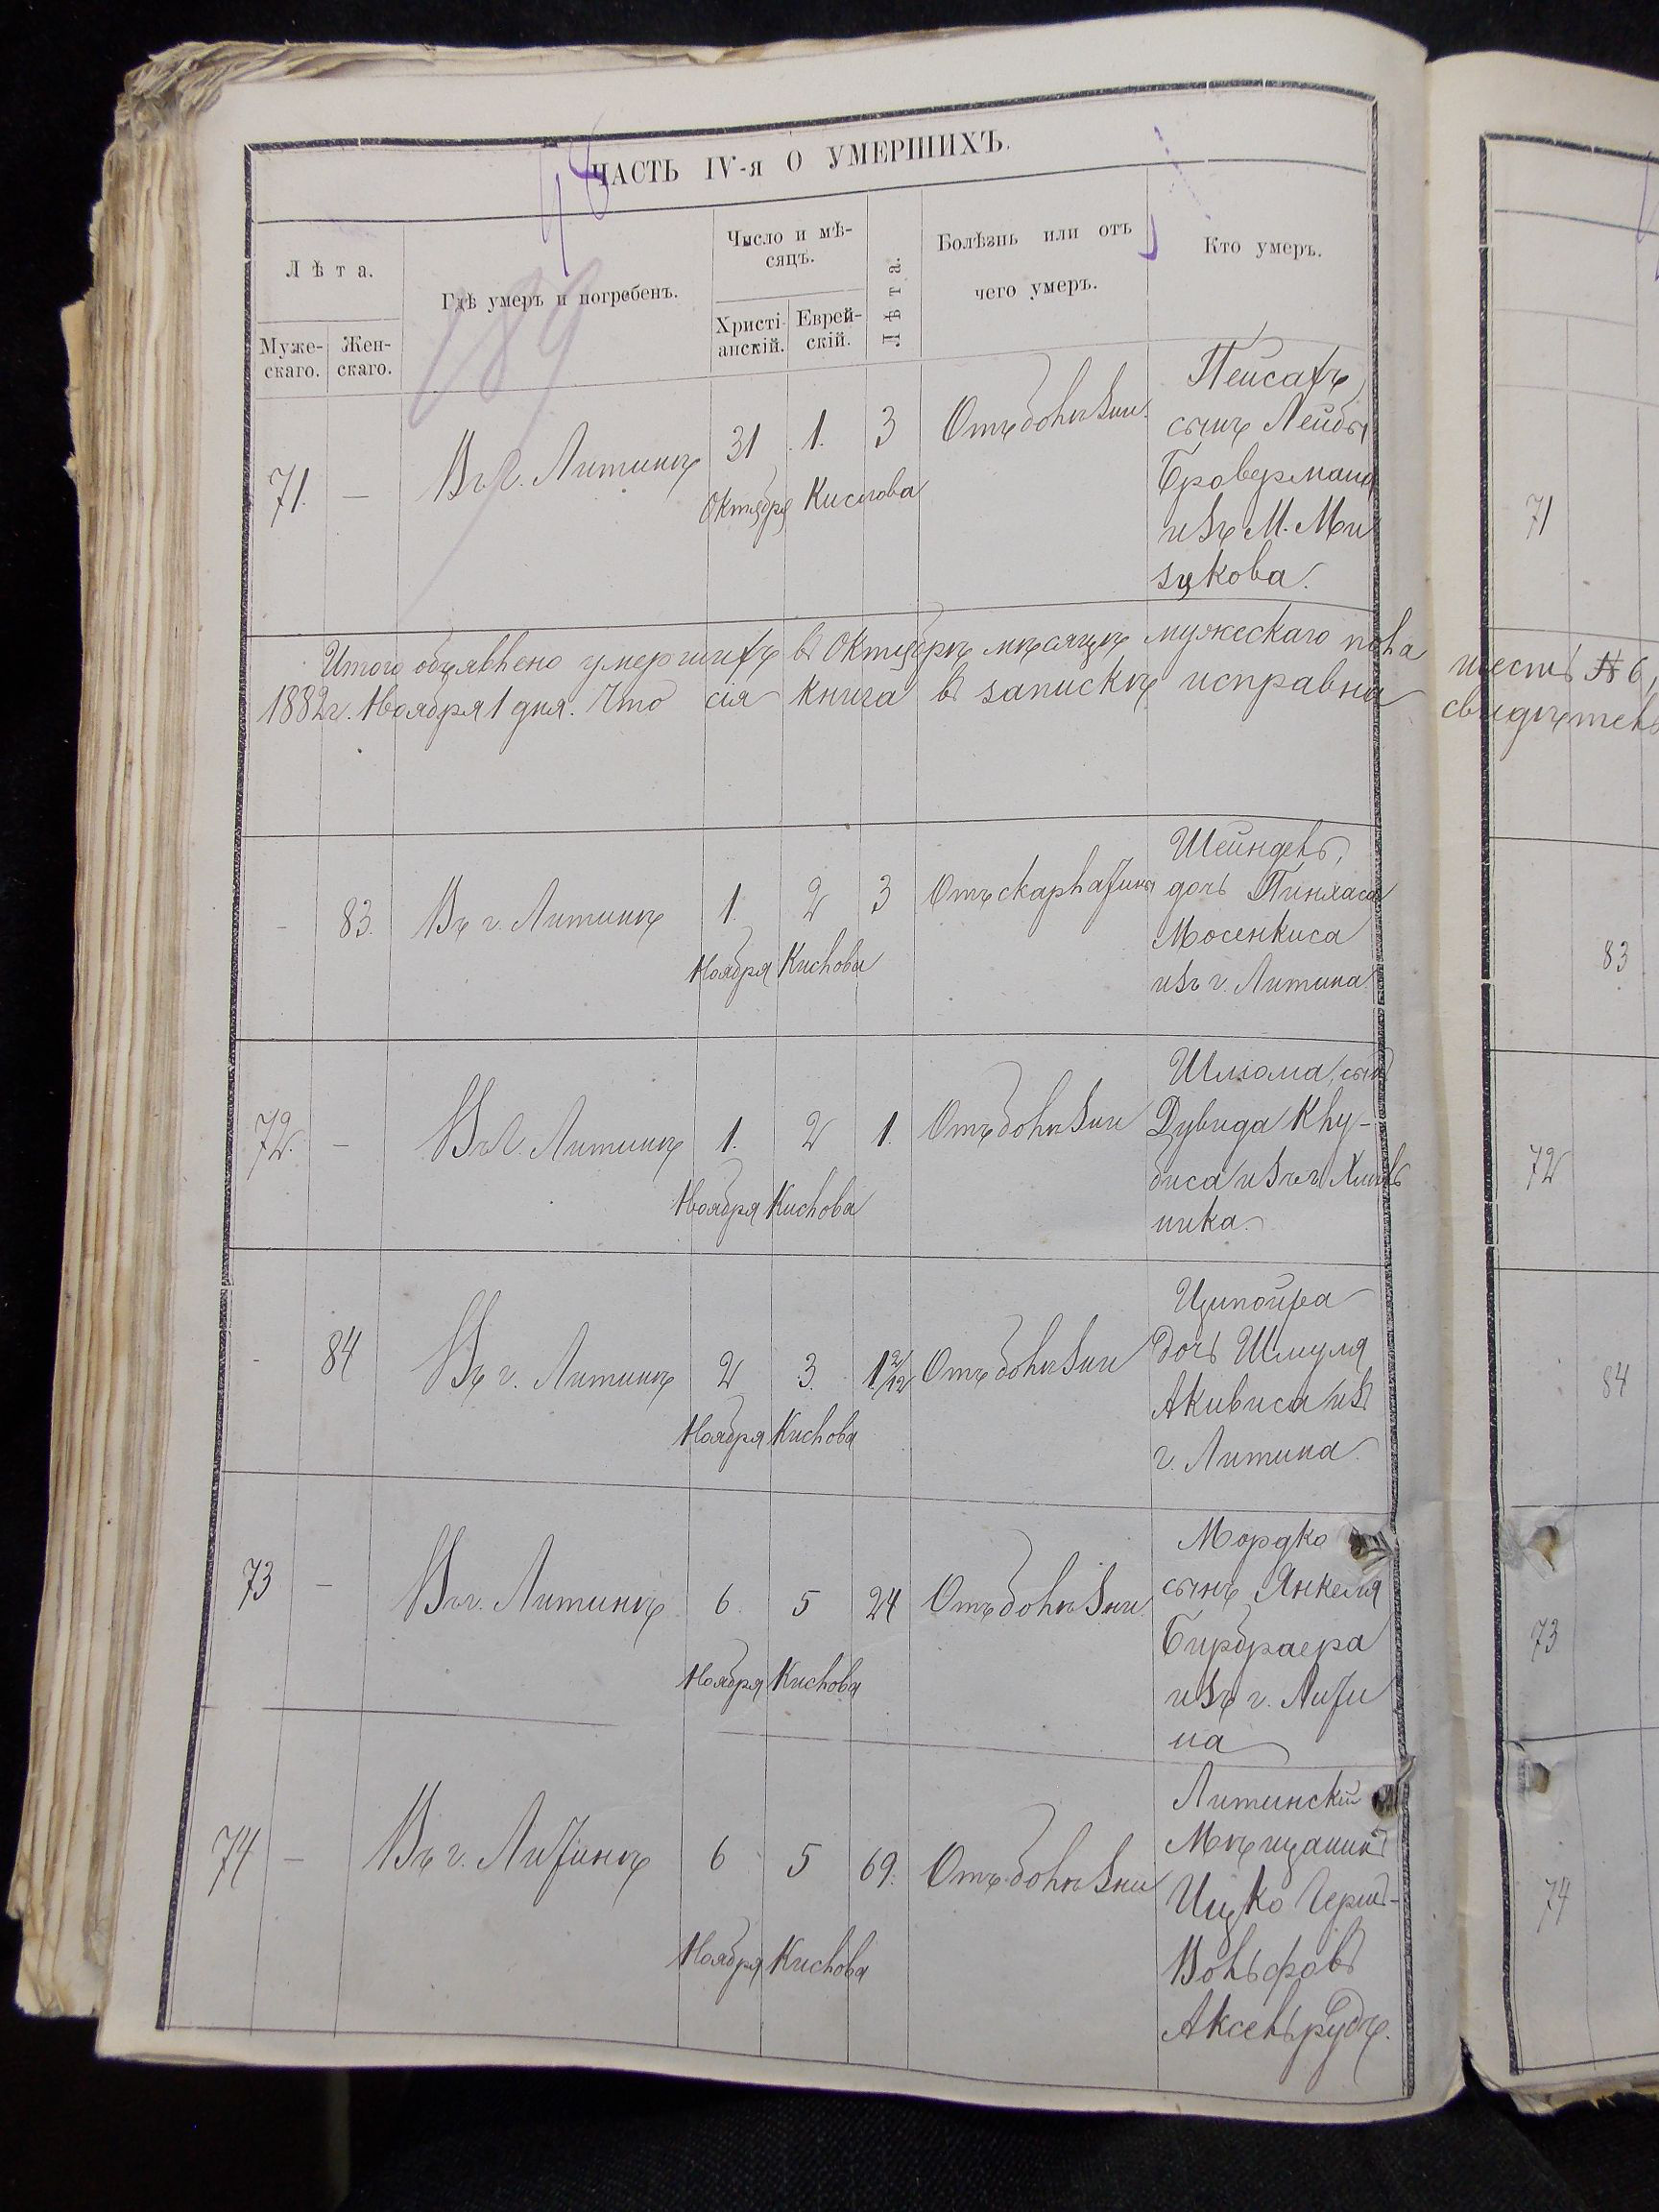 ЧАСТЬ IV-я О УМЕРШИХЪ.
48
189
Лѣта.
Муже-
скаго.
Жен-
скаго.
Гдѣ умеръ и погребенъ.
Число и мѣ-
сяцъ.
Христі-
анскій.
Еврей-
скій.
Лѣта.
Болѣзнь или отъ
чего умеръ.
Кто умеръ.
71. — Въ г. Литинѣ 31 1. 3 Отъ болѣзни
Октября Кислова
Пейсахъ,
сынъ Лейбы
Бровермана
изъ М. Ми
зякова.
71
Итого объявлено умершихъ въ Октябрѣ мѣсяцѣ мужескаго пола шесть № 6,
1882 г. Ноября 1 дня. Что сія книга въ запискѣ исправна свидѣтель
- 83. Въ г. Литинѣ 1. 2 3 Отъ скарлатины
Ноября Кислова
Шейндель,
дочь Пинхаса
Мосенкиса
изъ г. Литина
83
72. — Въ г. Литинѣ 1. 2 1. Отъ болѣзни
Ноября Кислова
Шлиома, сынъ
Дувида Клу-
биса изъ г. Хмѣль
ника
72
- 84 Въ г. Литинѣ 2 3. 1 2/12 Отъ болѣзни
Ноября Кислова
Ципойра
дочь Шмуля
Акивиса изъ
г. Литина
84
73 — Въ г. Литинѣ 6 5 24 Отъ болѣзни
Ноября Кислова
Мордко
сынъ Янкеля
Бирбраера
изъ г. Лити
на
73
74 — Въ г. Литинѣ 6 5 69. Отъ болѣзни
Ноября Кислова
Литинскій
Мѣщанинъ
Ицко Герш-
Вольфовъ
Аксельрудъ.
74